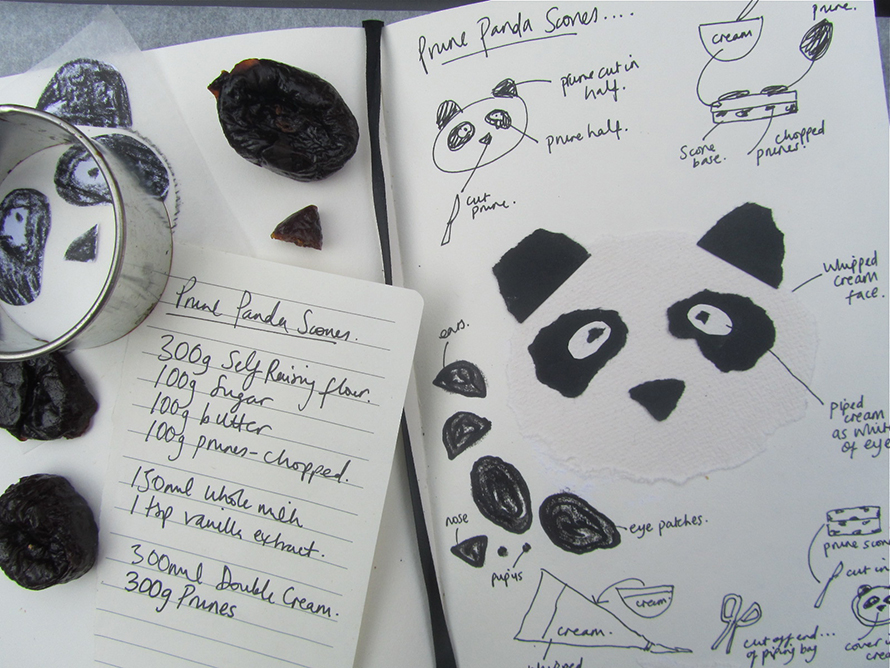 Prune Panda Scones.
300g Self Raising flour.
100g Sugar
100g butter
100g prunes - chopped.
150ml whole milk
1 tsp vanilla extract.
300ml Double Cream.
300g Prunes
Prune Panda Scones....
prune cut in
half.
prune half.
cut
prune.
cream
prune.
Scone
base.
Chopped
prunes.
Whipped
cream
face.
ears.
Piped
cream
as white
of eye
nose
pupils
eye patches.
cream.
cream.
whipped
cut off end...
of piping bag
prune scon
cut in
cover in
crea